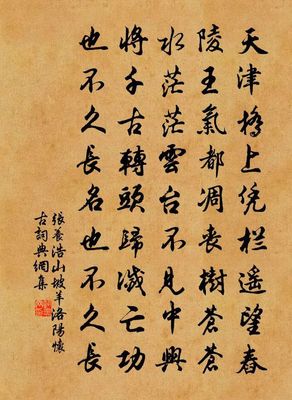 天津橋上凭栏遥望春
陵王氣都凋丧樹蒼蒼
水茫茫雲台不見中興
將千古轉頭歸滅亡功
也不久長名也不久長
張養浩山坡羊洛陽懷
古詞典網集